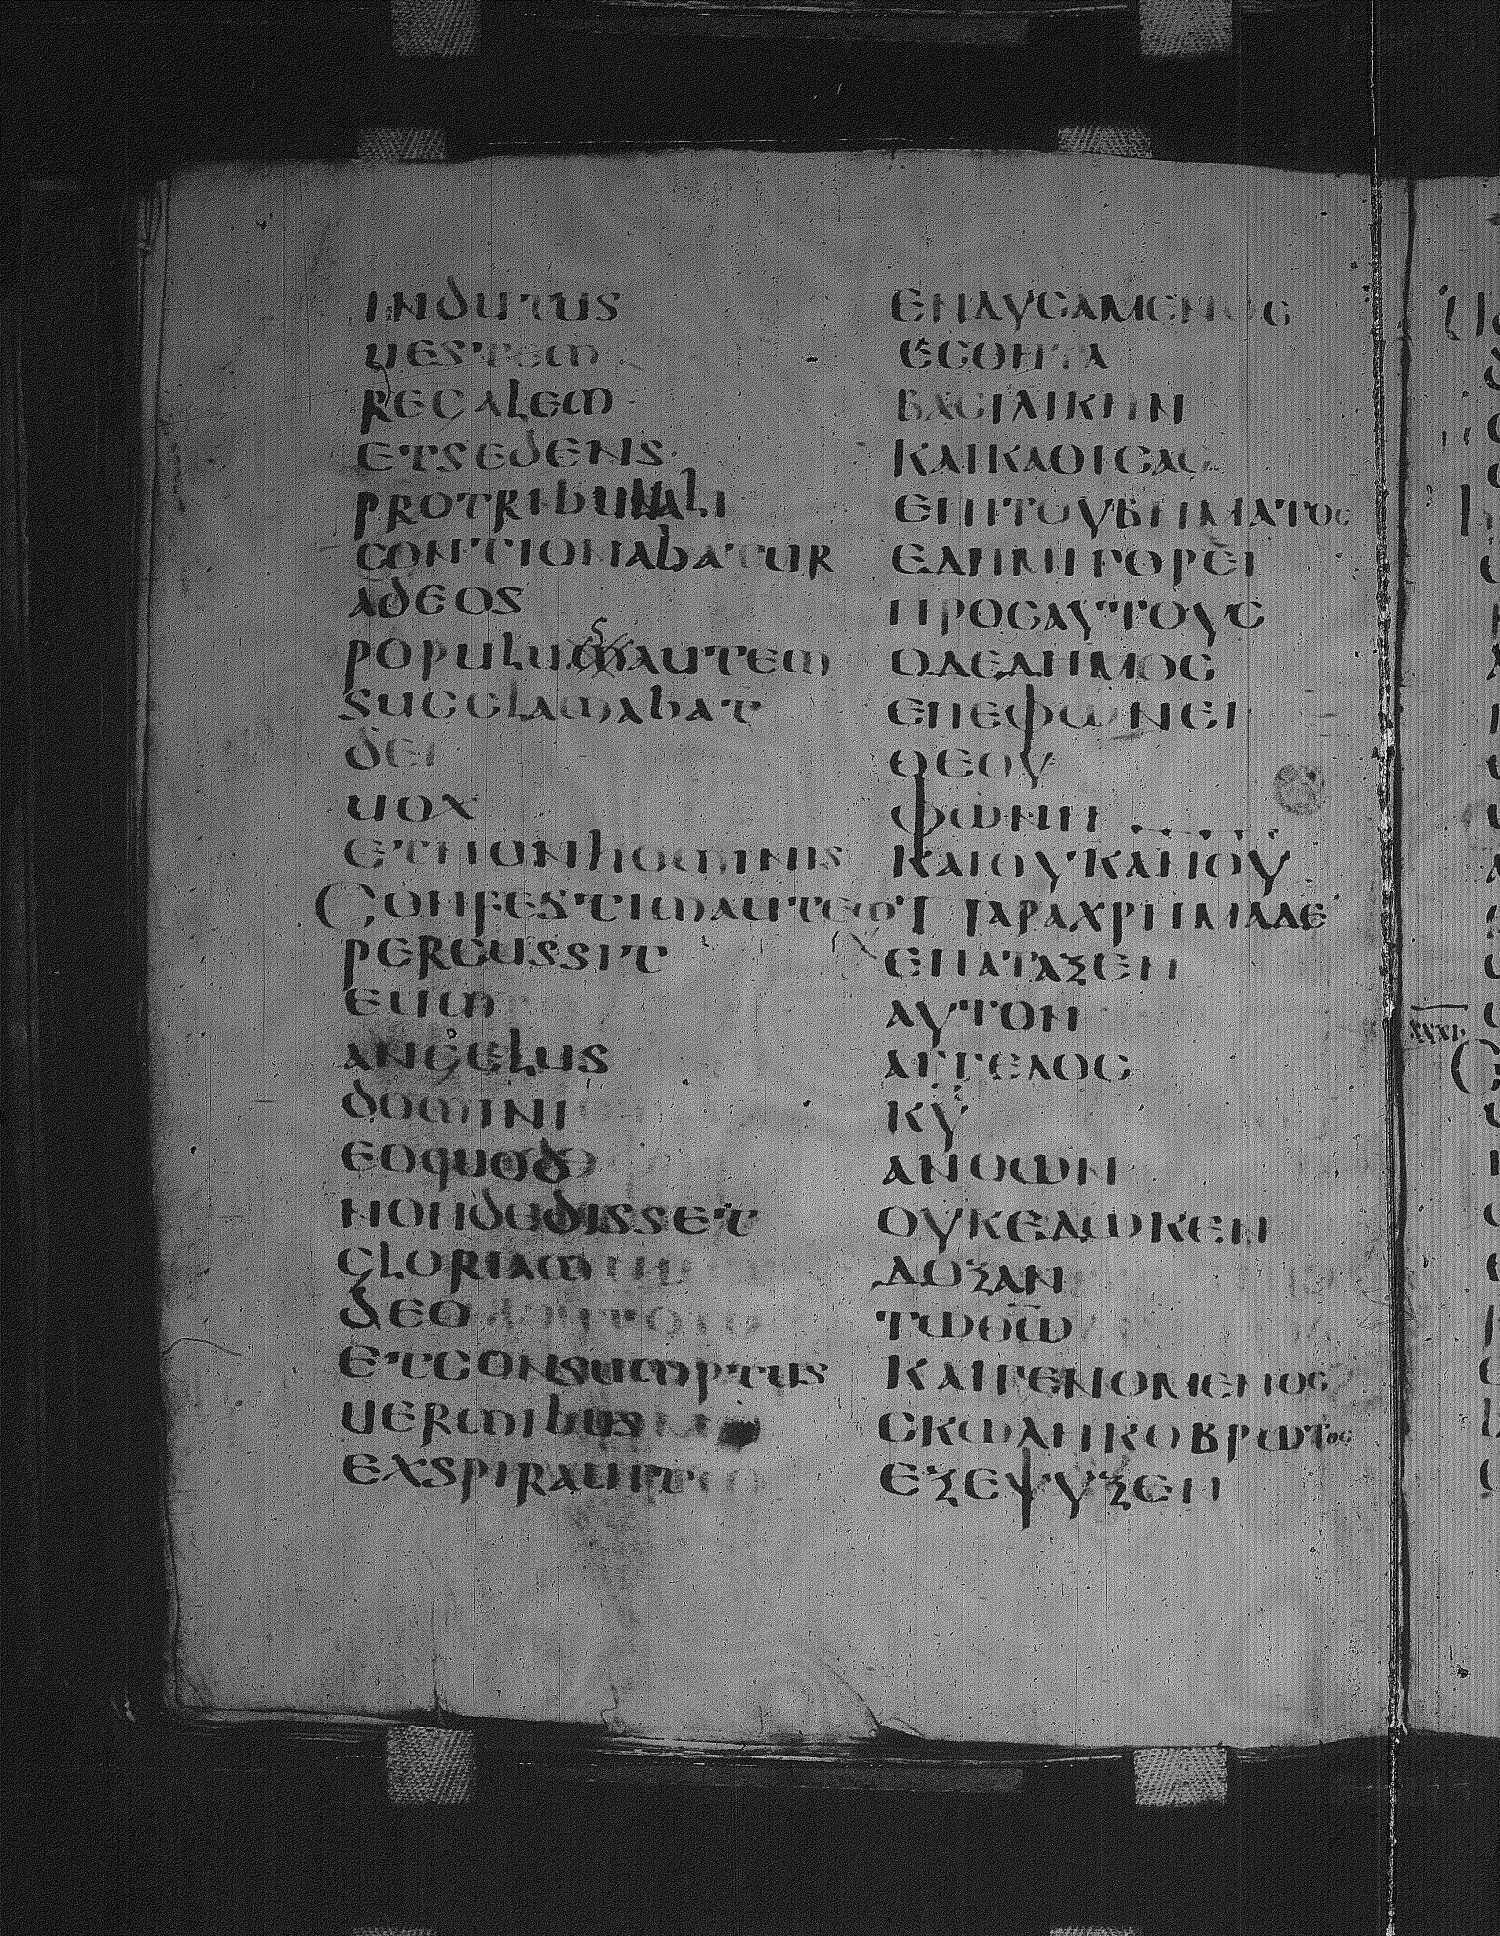 INDUTUS
UESTEM
REGALEM
ETSEDENS
PROTRIBUNALI
CONTIONABATUR
ADEOS
POPULUSAUTEM
SUCCLAMABAT
DEI
UOX
ETNONHOMINIS
CONFESTIMAUTEM
PERCUSSIT
EUM
ANGELUS
DOMINI
EOQUOD
NONDEDISSET
GLORIAM
DEO
ETCONSUMPTUS
UERMIBUS
EXSPIRAUIT
ΕΝΔΥCΑΜΕΝΟC
ΕCΘΗΤΑ
ΒΑCΙΛΙΚΗΝ
ΚΑΙΚΑΘΙCΑC
ΕΠΙΤΟΥΒΗΜΑΤΟC
ΕΔΗΜΗΓΟΡΕΙ
ΠΡΟCΑΥΤΟΥC
ΟΔΕΔΗΜΟC
ΕΠΕΦΩΝΕΙ
ΘΕΟΥ
ΦΩΝΗ
ΚΑΙΟΥΚΑΝΟΥ
ΠΑΡΑΧΡΗΜΑΔΕ
ΕΠΑΤΑΞΕΝ
ΑΥΤΟΝ
ΑΓΓΕΛΟC
ΚΥ
ΑΝΘΩΝ
ΟΥΚΕΔΩΚΕΝ
ΔΟΞΑΝ
ΤΩΘΩ
ΚΑΙΓΕΝΟΜΕΝΟC
CΚΩΛΗΚΟΒΡΩΤΟC
ΕΞΕΨΥΞΕΝ